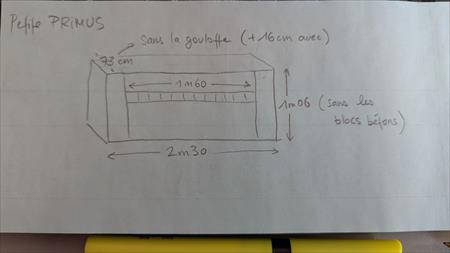 Petite PRIMUS
sans la goulotte (+16cm avec)
73 cm
1m60
1m06 (sans les
blocs bétons)
2m30